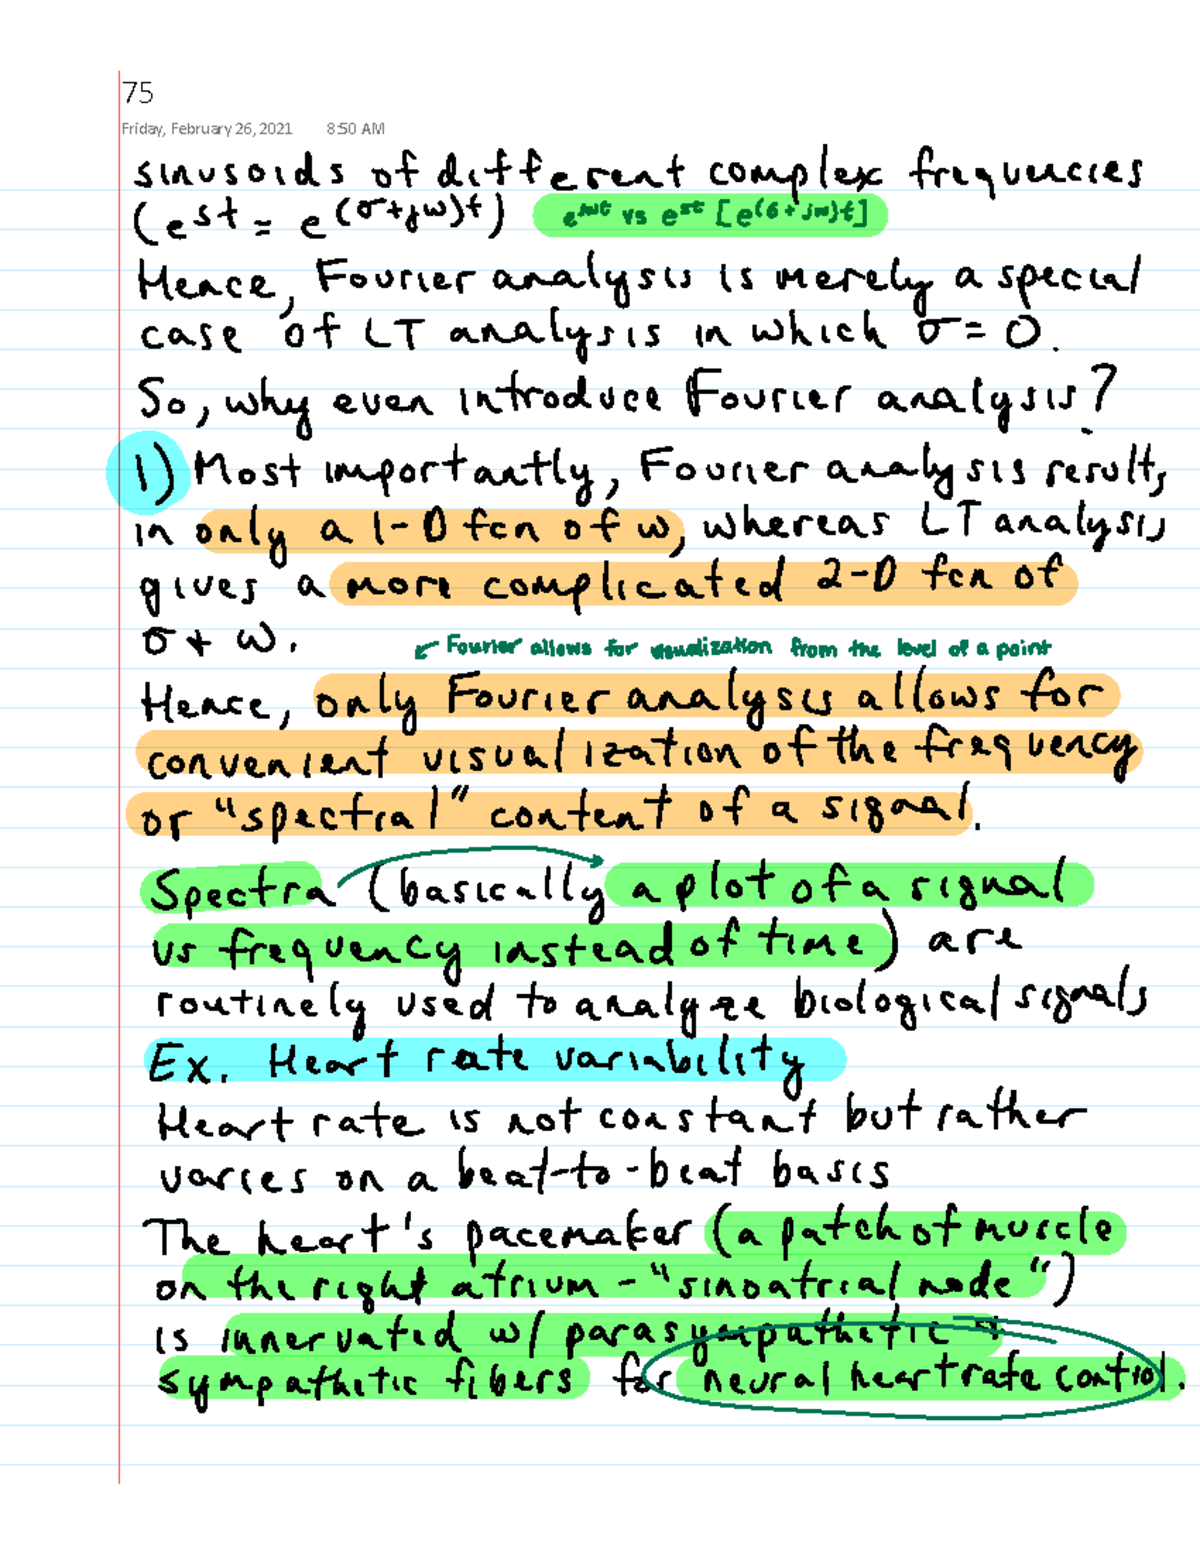 75
Friday, February 26, 2021 8:50 AM
sinusoids of different complex frequencies
(e^st = e^(σ+jω)t) e^jωt vs e^st [e^(σ+jω)t]
Hence, Fourier analysis is merely a special
case of LT analysis in which σ = 0.
So, why even introduce Fourier analysis?
1) Most importantly, Fourier analysis results
in only a 1-D fcn of ω, whereas LT analysis
gives a more complicated 2-D fcn of
σ + ω.
← Fourier allows for visualization from the level of a point
Hence, only Fourier analysis allows for
convenient visualization of the frequency
or "spectral" content of a signal.
Spectra (basically a plot of a signal
vs frequency instead of time) are
routinely used to analyze biological signals
Ex. Heart rate variability
Heart rate is not constant but rather
varies on a beat-to-beat basis
The heart's pacemaker (a patch of muscle
on the right atrium - "sinoatrial node")
is innervated w/ parasympathetic +
sympathetic fibers for neural heart rate control.